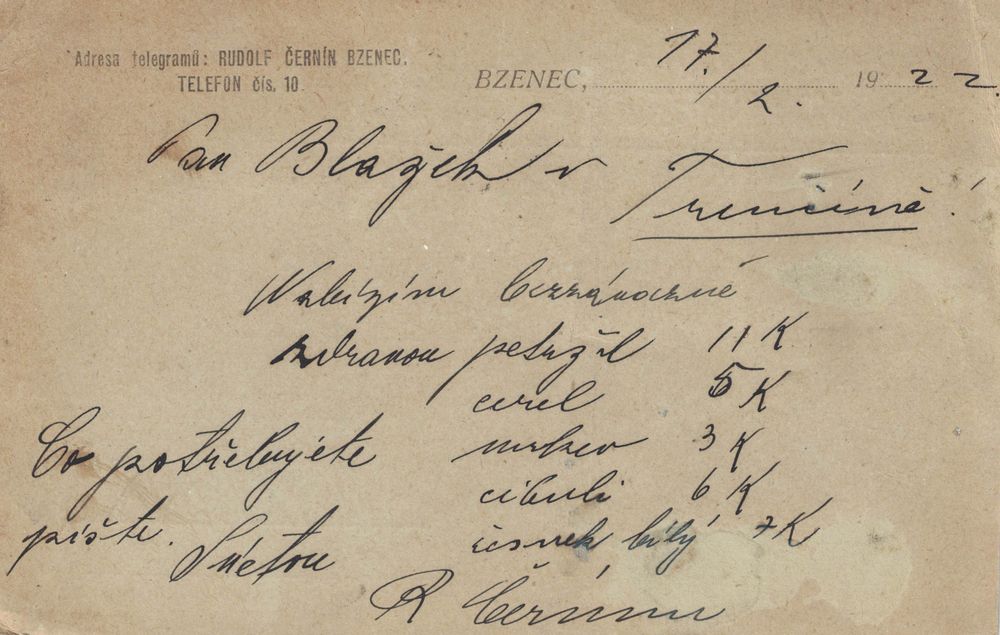 Adresa telegramů: RUDOLF ČERNÍN BZENEC.
TELEFON čís. 10
BZENEC, 17./2. 1922.
Pan Blažek v Trenčíně!
Nabízím bezzávazně
zdravou petržel 11 K
cerel 5 K
mrkev 3 K
cibuli 6 K
česnek bílý 7 K
Co potřebujete
pište.
S úctou
R Černín